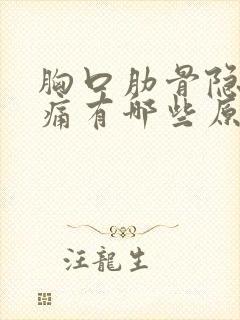 胸口肋骨隐
痛有哪些原
汪龍生